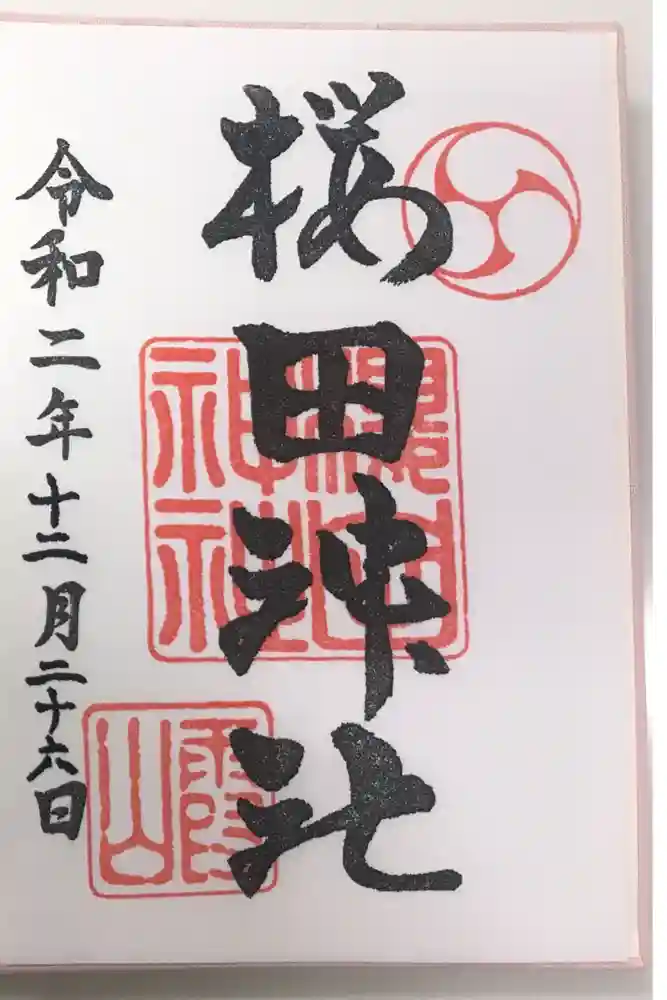 桜田神社
櫻田
神社
霞
山
令和二年十二月二十六日